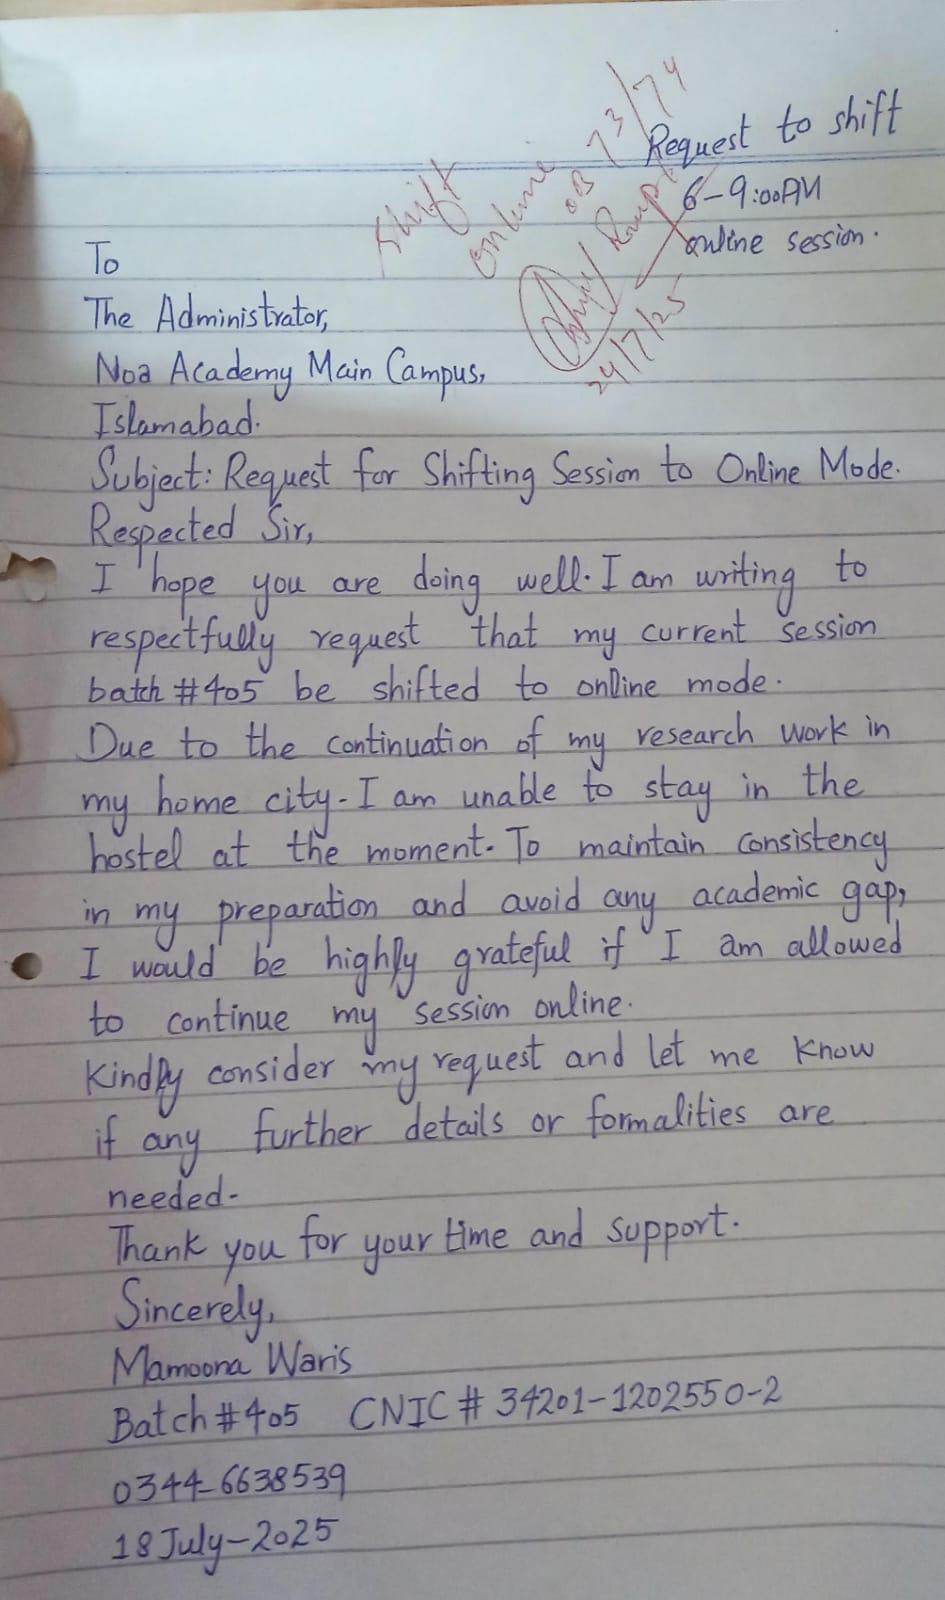 Request to shift
6-9:00AM
online session.
Shift
Online
OB 73/74
24/7/25
To
The Administrator,
Noa Academy Main Campus,
Islamabad.
Subject: Request for Shifting Session to Online Mode.
Respected Sir,
I hope you are doing well. I am writing to
respectfully request that my current session
batch #405 be shifted to online mode.
Due to the continuation of my research work in
my home city. I am unable to stay in the
hostel at the moment. To maintain consistency
in my preparation and avoid any academic gap,
I would be highly grateful if I am allowed
to continue my session online.
Kindly consider my request and let me know
if any further details or formalities are
needed.
Thank you for your time and support.
Sincerely,
Mamoona Waris
Batch #405 CNIC # 34201-1202550-2
0344-6638539
18 July-2025